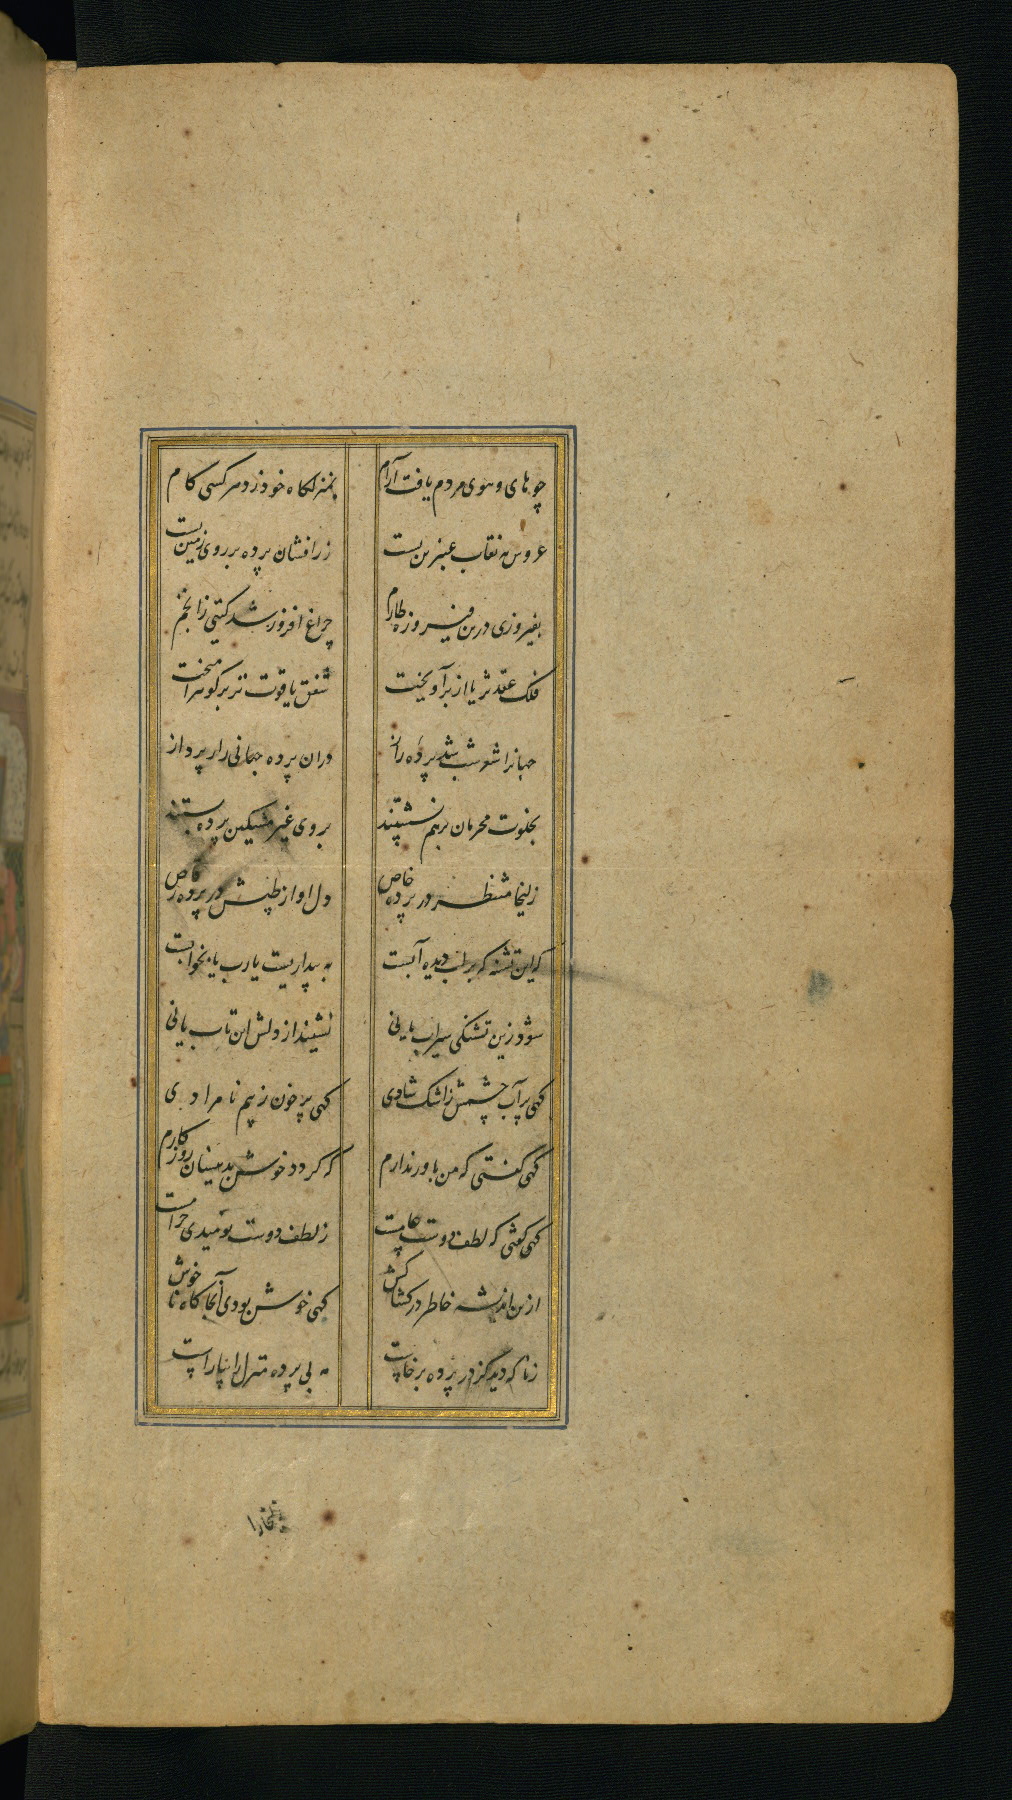 چو های و هوی مردم یافت آرام بمنزلگاه خود زد هر کسی کام
عروس مه نقاب عنبرین بست زرافشان پرده بر روی زمین بست
بفیروزی درین فیروزه طارم چراغ افروز شد گیتی ز انجم
فلک عقد ثریا از بر آویخت شفق یاقوت تر بر گوهر آمیخت
جهانرا شد شب پرده راز دران پرده جهانی راز پرداز
بخلوت محرمان بر هم نشستند بروی غیر مشکین پرده بستند
زلیخا منتظر در پرده خاص دل او از طپش در پرده رقاص
که این تشنه که بر لب دیده آبست به بیداریست یارب یا بخوابست
شود زین تشنگی سیراب یا نی نشیند از دلش این تاب یا نی
گهی پر آب چشمش ز اشک شادی گهی پر خون ز بیم نامرادی
گهی گفتی که من باور ندارم که گردد خوش بدینسان روزگارم
گهی گفتی که لطف دوست عامست ز لطف دوست نومیدی حرامست
ازین اندیشه خاطر در کشاکش گهی خوش بودی آنجا گاه ناخوش
زناگه دید کز در پرده برخاست مه بی پرده منزل را بیاراست
زلیخا را